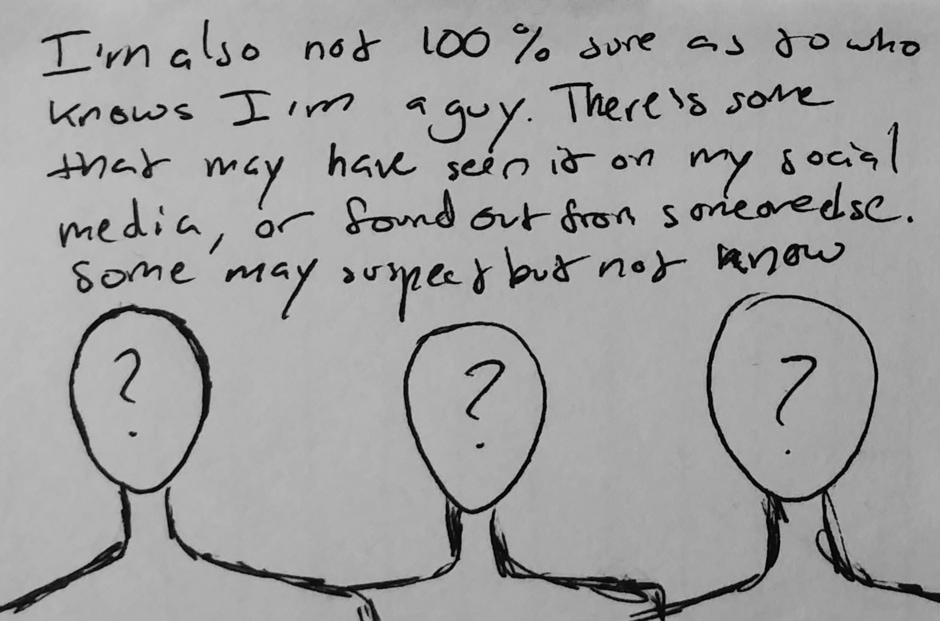 I'm also not 100% sure as to who
knows I'm a guy. There's some
that may have seen it on my social
media, or found out from someone else.
Some may suspect but not know
? ? ?